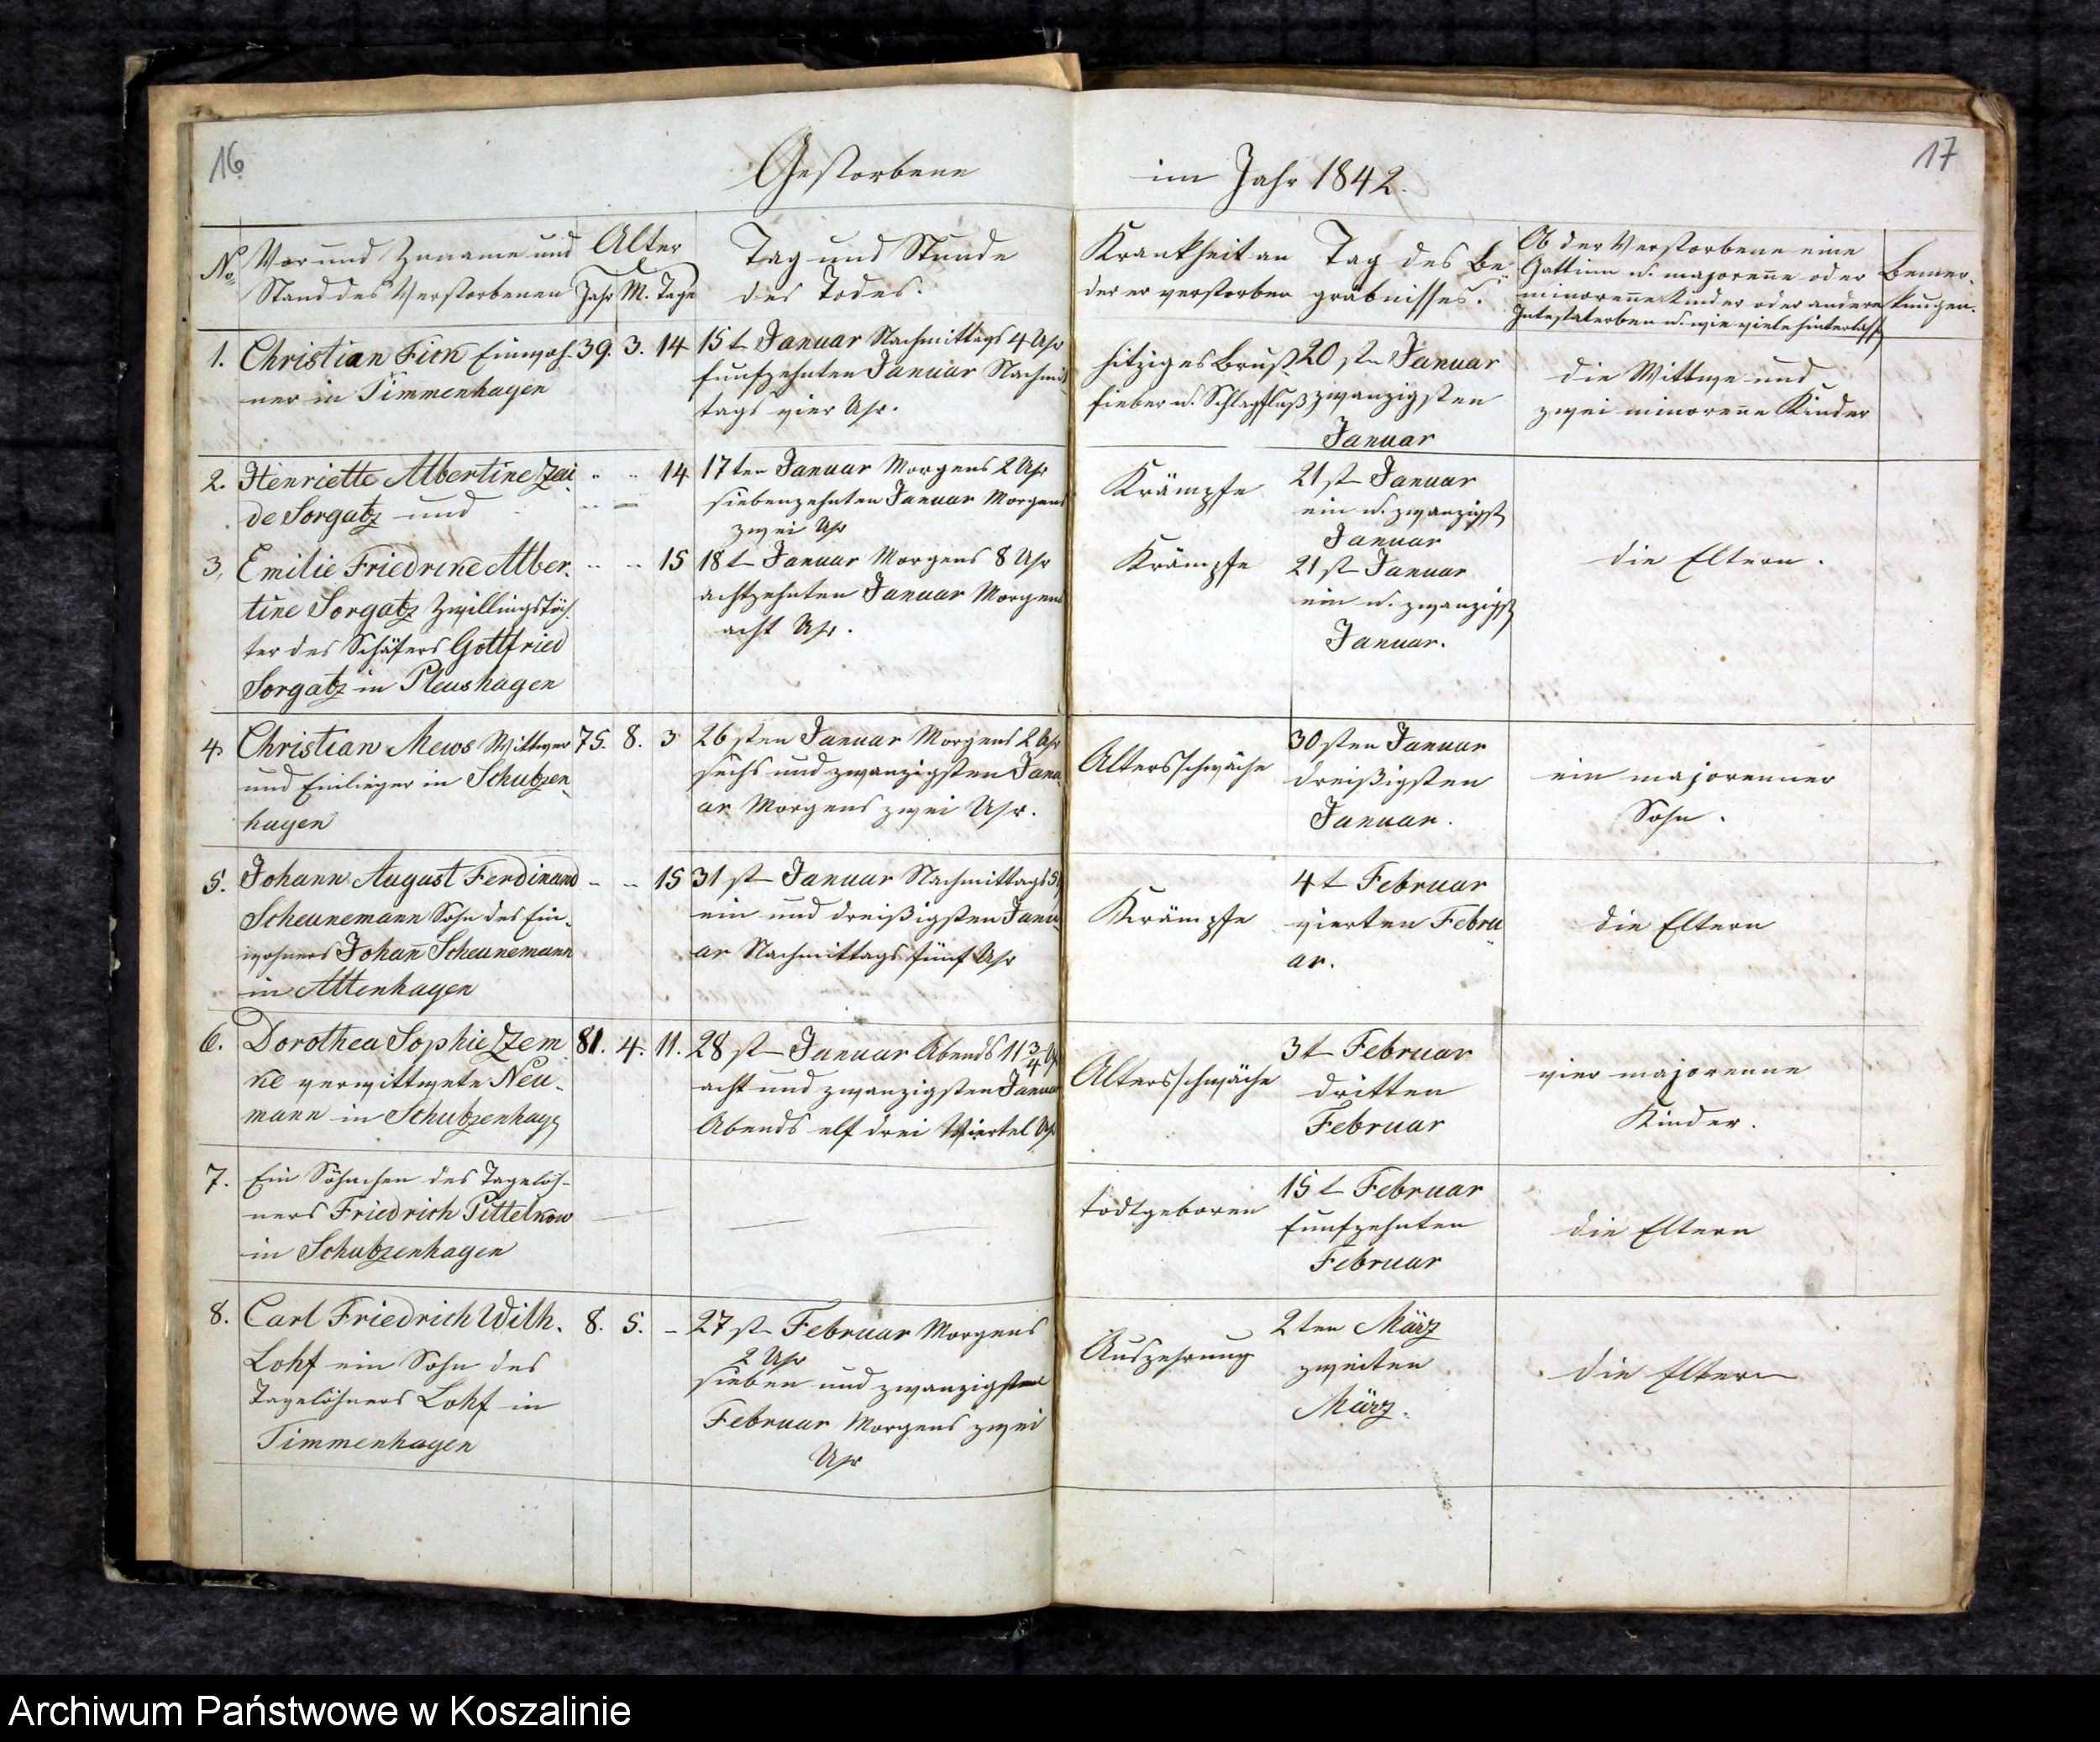 16
17
Gestorbene
im Jahr 1842.
No
Vor und Zuname und
Stand des Verstorbenen
Alter
Jahr M. Tage
Tag und Stunde
des Todes.
Krankheit an
der er verstorben
Tag des Be
gräbnisses.
Ob der Verstorbene eine
Gattinn u. majorenne oder
minorenne Kinder oder andere
Intestaterben u. wie viele hinterlass
Bemer.
kungen.
1. Christian Fick Einwoh. 39. 3. 14
ner in Timmenhagen
15t Januar Nachmittags 4 Uhr
funfzehnten Januar Nachmit
tags vier Uhr.
hitziges Brust
fieber u. Schlagfluß
20st Januar
zwanzigsten
Januar
die Wittwe und
zwei minorenne Kinder
2. Henriette Albertine Zai 14
de Sorgatz und
17ten Januar Morgens 2 Uhr
siebenzehnten Januar Morgens
zwei Uhr
Krämpfe
21st Januar
ein u. zwanzigst
Januar
3, Emilie Friedrike Alber. 15
tine Sorgatz Zwillingstöch
ter des Schäfers Gottfried
Sorgatz in Pleushagen
18t Januar Morgens 8 Uhr
achtzehnten Januar Morgens
acht Uhr.
Krämpfe
21st Januar
ein u. zwanzigst
Januar.
die Eltern.
4. Christian Mews Wittwer 75. 8. 3
und Einlieger in Schutzen
hagen
26sten Januar Morgens 2 Uhr
sechs und zwanzigsten Janu
ar Morgens zwei Uhr.
Altersschwäche
30sten Januar
dreißigsten
Januar.
ein majorenner
Sohn.
5. Johann August Ferdinand 15
Scheunemann Sohn des Ein.
wohners Johann Scheunemann
in Altenhagen
31st Januar Nachmittags 5
ein und dreißigsten Janu
ar Nachmittags fünf Uhr
Krämpfe
4t Februar
vierten Febru
ar.
die Eltern
6. Dorothea Sophie Zem 81. 4. 11.
ke verwittwete Neu-
mann in Schutzenhagen
28st Januar Abends 11 3/4 Uhr
acht und zwanzigsten Januar
Abends elf drei Viertel Uhr
Altersschwäche
3t Februar
dritten
Februar
vier majorenne
Kinder.
7. Ein Söhnchen des Tagelöh-
ners Friedrich Pittelkow
in Schutzenhagen
todtgeboren
15t Februar
funfzehnten
Februar
die Eltern
8. Carl Friedrich Wilh. 8. 5. -
Lohf ein Sohn des
Tagelöhners Lohf in
Timmenhagen
27st Februar Morgens
2 Uhr
sieben und zwanzigsten
Februar Morgens zwei
Uhr
Auszehrung
2ten März
zweiten
März.
die Eltern
Archiwum Państwowe w Koszalinie